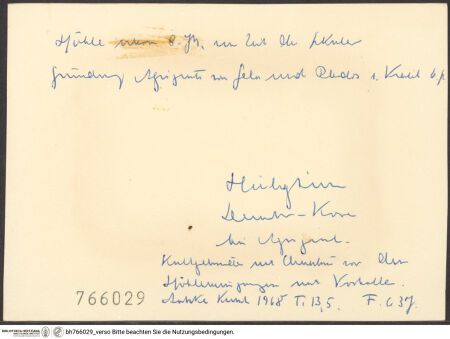 Höhle schon 8. Jh. zur Zeit der
Gründung Agrigents von Gela und Rhodos u. Kreta
Heiligtum
Demeter-Kore
bei Agrigent.
Kultgebäude vor den
Höhleneingängen mit Vorhalle.
Antike Kunst 1968 T. 13,5. F. C 37.
766029
BIBLIOTHECA HERTZIANA bh766029_verso Bitte beachten Sie die Nutzungsbedingungen.